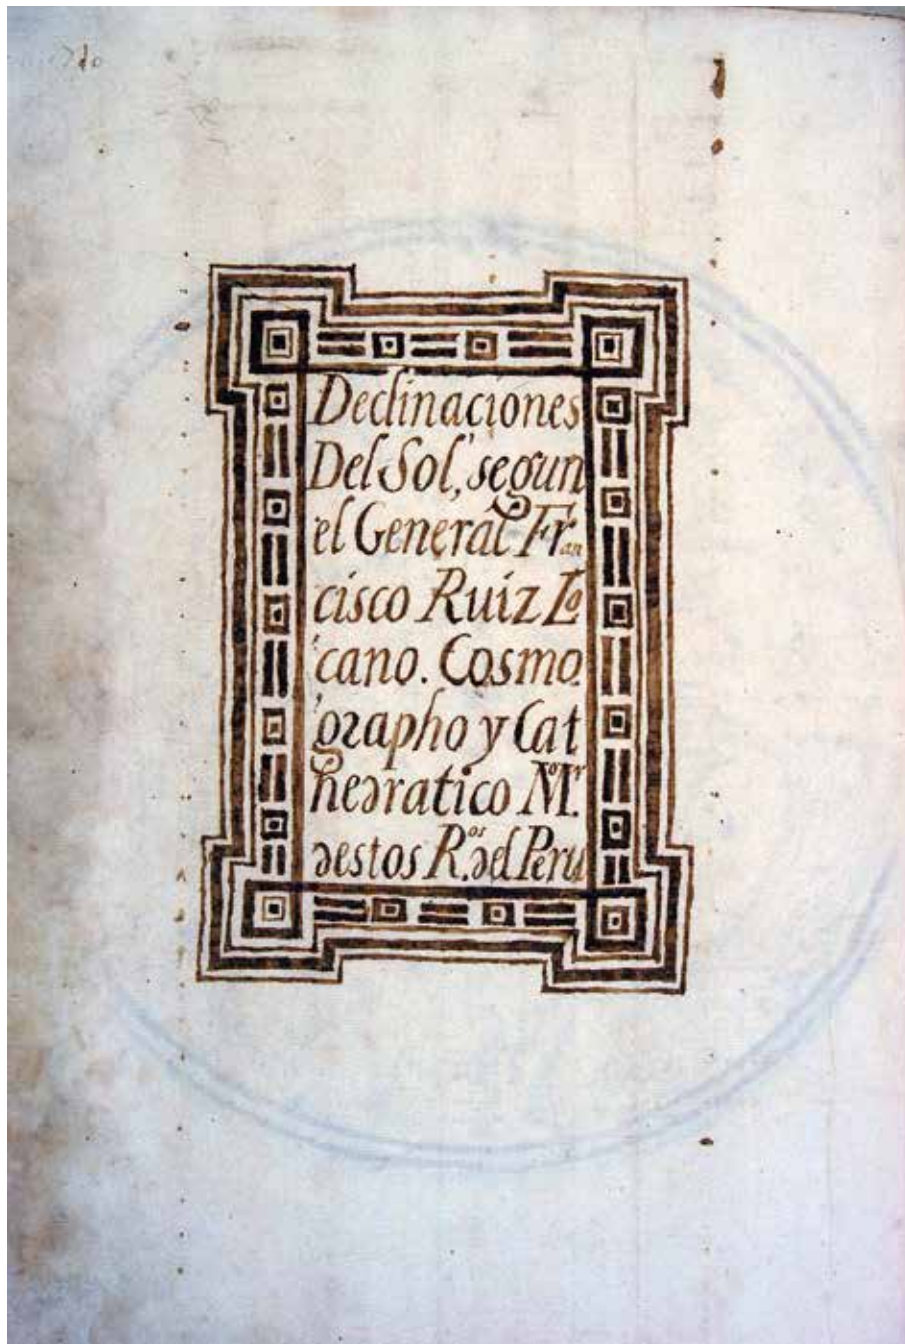 Declinaciones
Del Sol, segun
el General Fran
cisco Ruiz Lo
cano. Cosmo.
grapho y Cat
hedratico Mor.
destos R.os del Peru